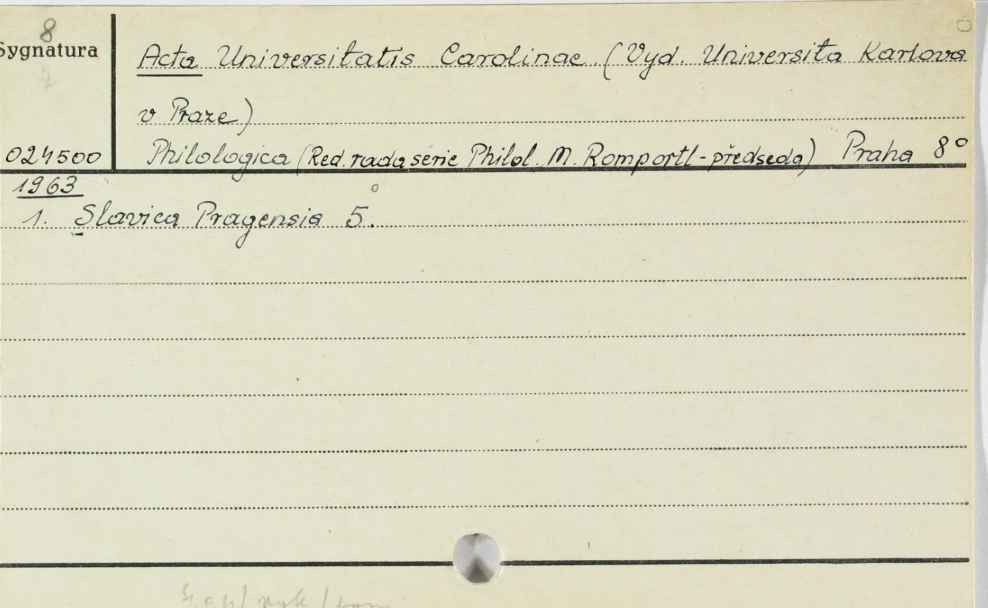 8
Sygnatura
Acta Universitatis Carolinae (Vyd. Universita Karlova
v Praze)
024500 Philologica (Red. rada serie Philol. M. Romportl-předseda) Praha 8°
1963
1. Slavica Pragensia 5.